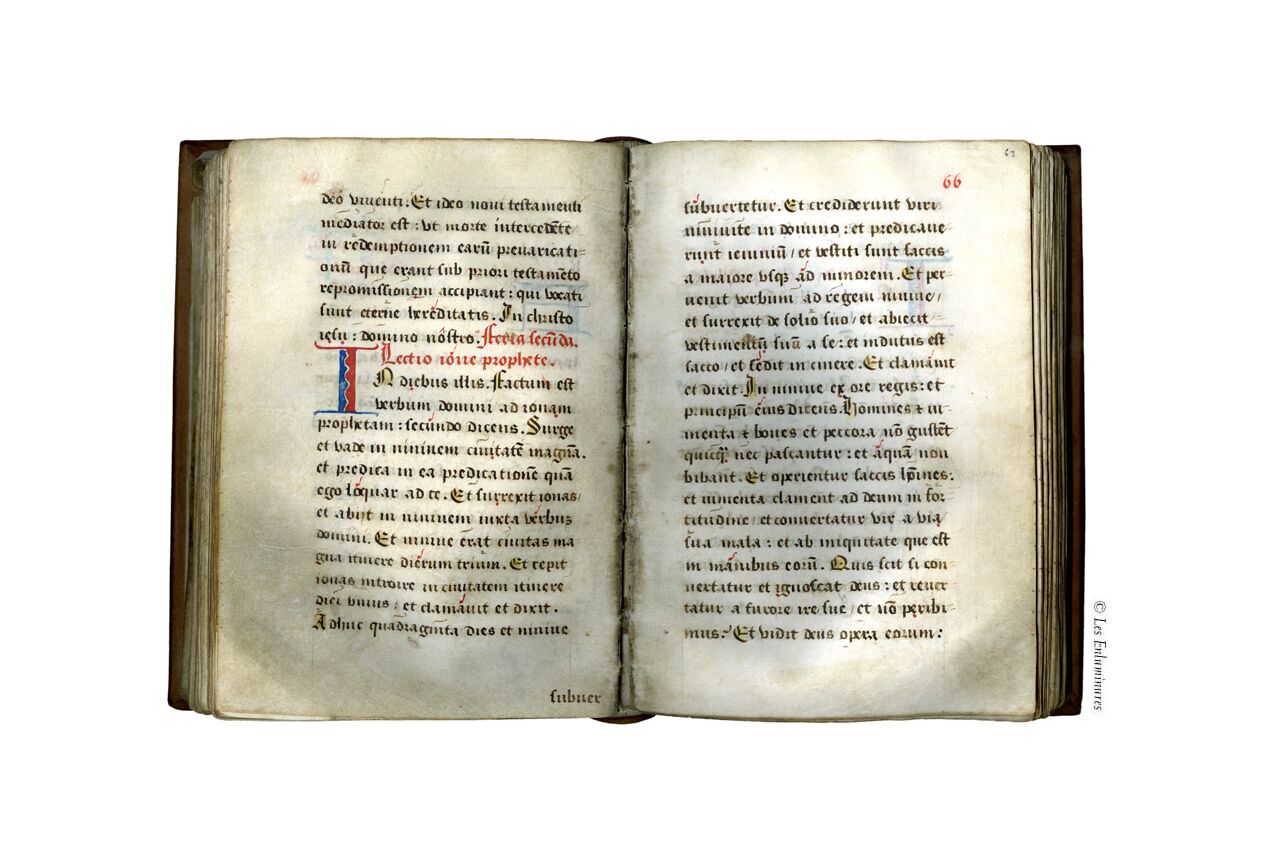 deo viventi. Et ideo novi testamenti
mediator est: ut morte intercedēte
in redemptionem earū prevaricati-
onū que erant sub priori testamēto
repromissionem accipiant: qui vocati
sunt eterne hereditatis. In christo
iesu: domino nostro. Feria secūda.
Lectio ione prophete.
IN diebus illis. Factum est
verbum domini ad ionam
prophetam: secundo dicens. Surge
et vade in niniven civitatē magnā.
et predica in ea predicationē quā
ego loquar ad te. Et surrexit ionas/
et abijt in niniven iuxta verbuz
domini. Et ninive erat civitas ma
gna itinere dierum triūm. Et cepit
ionas introire in civitatem itinere
diei unius: et clamavit et dixit.
Adhuc quadraginta dies et ninive
subuer
63
66
subvertetur. Et crediderunt viri
ninivite in domino: et predicave-
runt ieiuniū/ et vestiti sunt saccis
a maiore usqꝫ ad minorem. Et per-
venit verbum ad regem ninive/
et surrexit de solio suo/ et abiecit/
vestimentū suū a se: et indutus est
sacco/ et sedit in cinere. Et clamavit
et dixit. In ninive ex ore regis: et
principū eius dicens. Homines ⁊ iu-
menta ⁊ boves et peccora nō gustēt
quicqꝫ nec pascantur: et aquam non
bibant. Et operientur saccis hoīnes:
et iumenta clament ad deum in for-
titudine/ et convertatur vir a via
sua mala: et ab iniquitate que est
in manibus eorū. Quis scit si con-
vertatur et ignoscat deus: et rever-
tatur a furore ire sue/ et nō peribi-
mus? Et vidit deus opera eorum:
© Les Enluminures